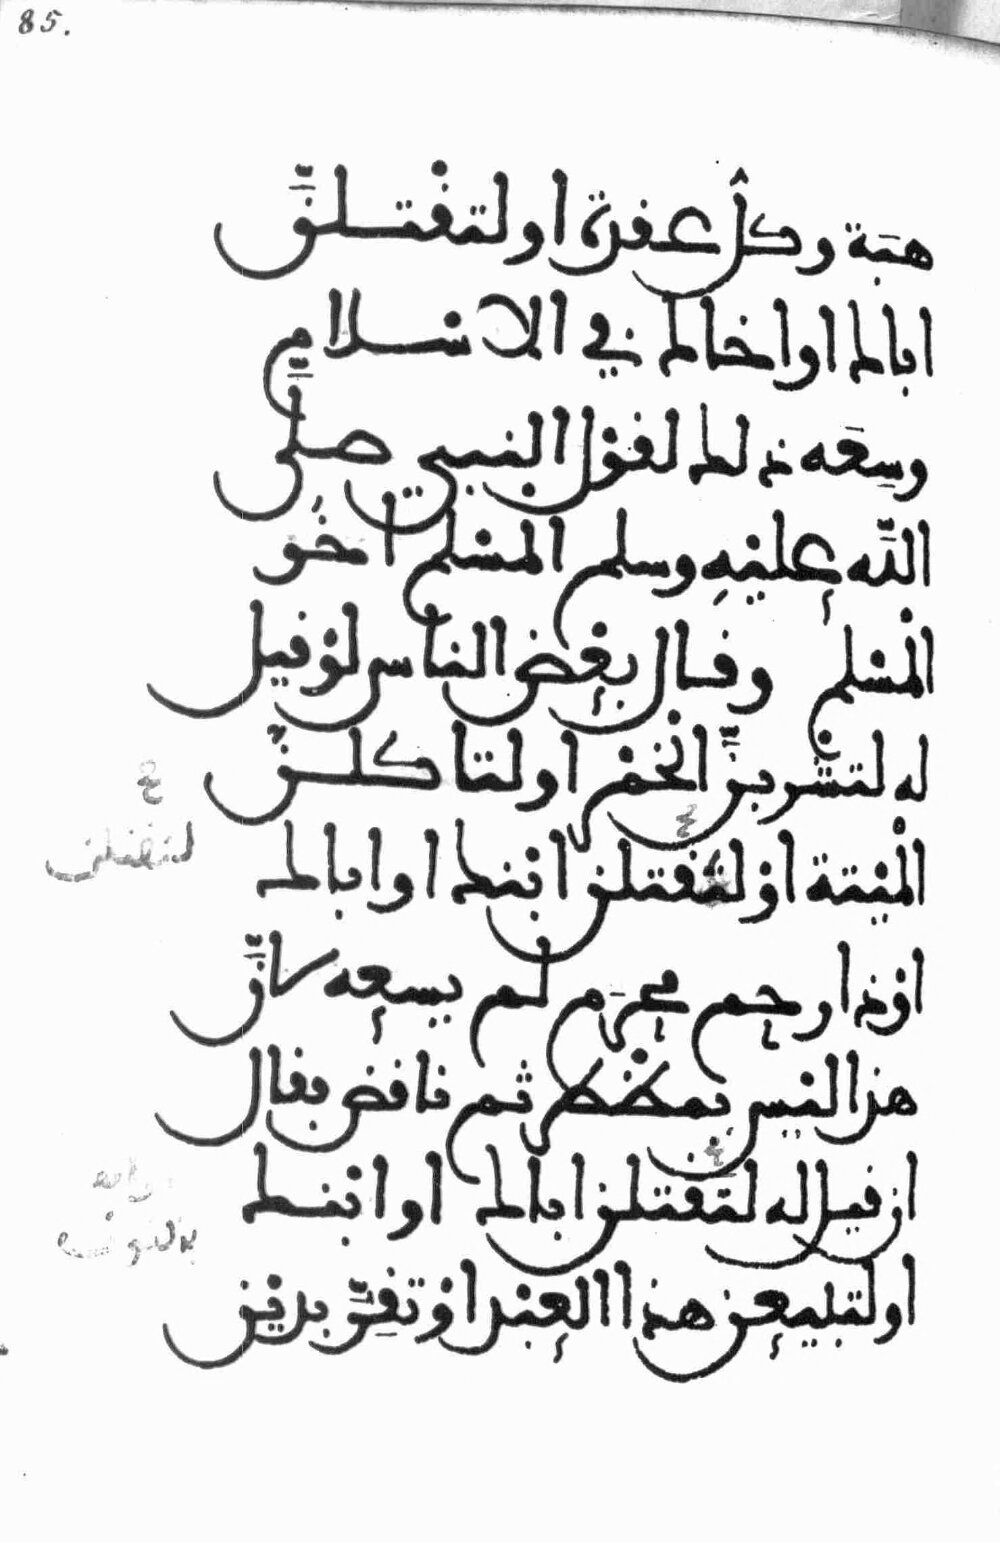 85.
هبة وكل عقدة او لتقتلنّ
اباك او اخاك في الاسلام
وسعه ذلك لقول النبي صلّى
الله عليه وسلم المسلم اخو
المسلم وقال بعض الناس لو قيل
له لتشربنّ الخمر او لتاكلنّ
الميتة او لتقتلن ابنك او اباك
لتقتلن
او ذا رحم محرم لم يسعه لانّ
هذا ليس بمضطر ثم ناقض فقال
ان قيل له لتقتلن اباك او ابنك
او لتبيعن هذا العبد او تقرّ بدين